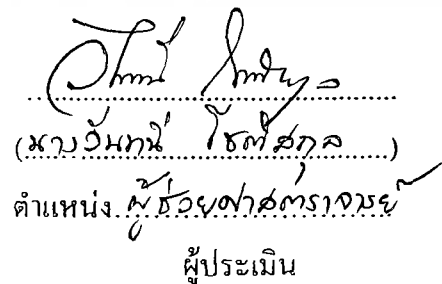 (นางวันทนี โชติสกุล)
ตำแหน่ง ผู้ช่วยศาสตราจารย์
ผู้ประเมิน